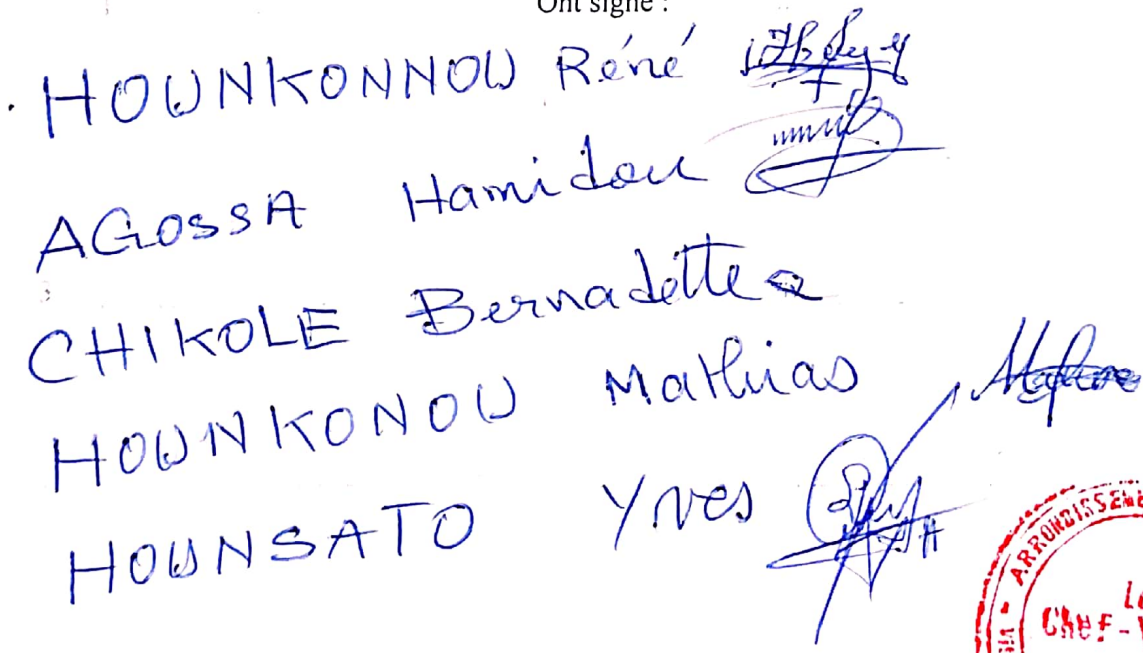 Ont signé :
HOUNKONNOU Réné
AGOSSA Hamidou
CHIKOLE Bernadette
HOUNKONOU Mathias
HOUNSATO Yves
ARRONDISSEME
Le
Chef-V